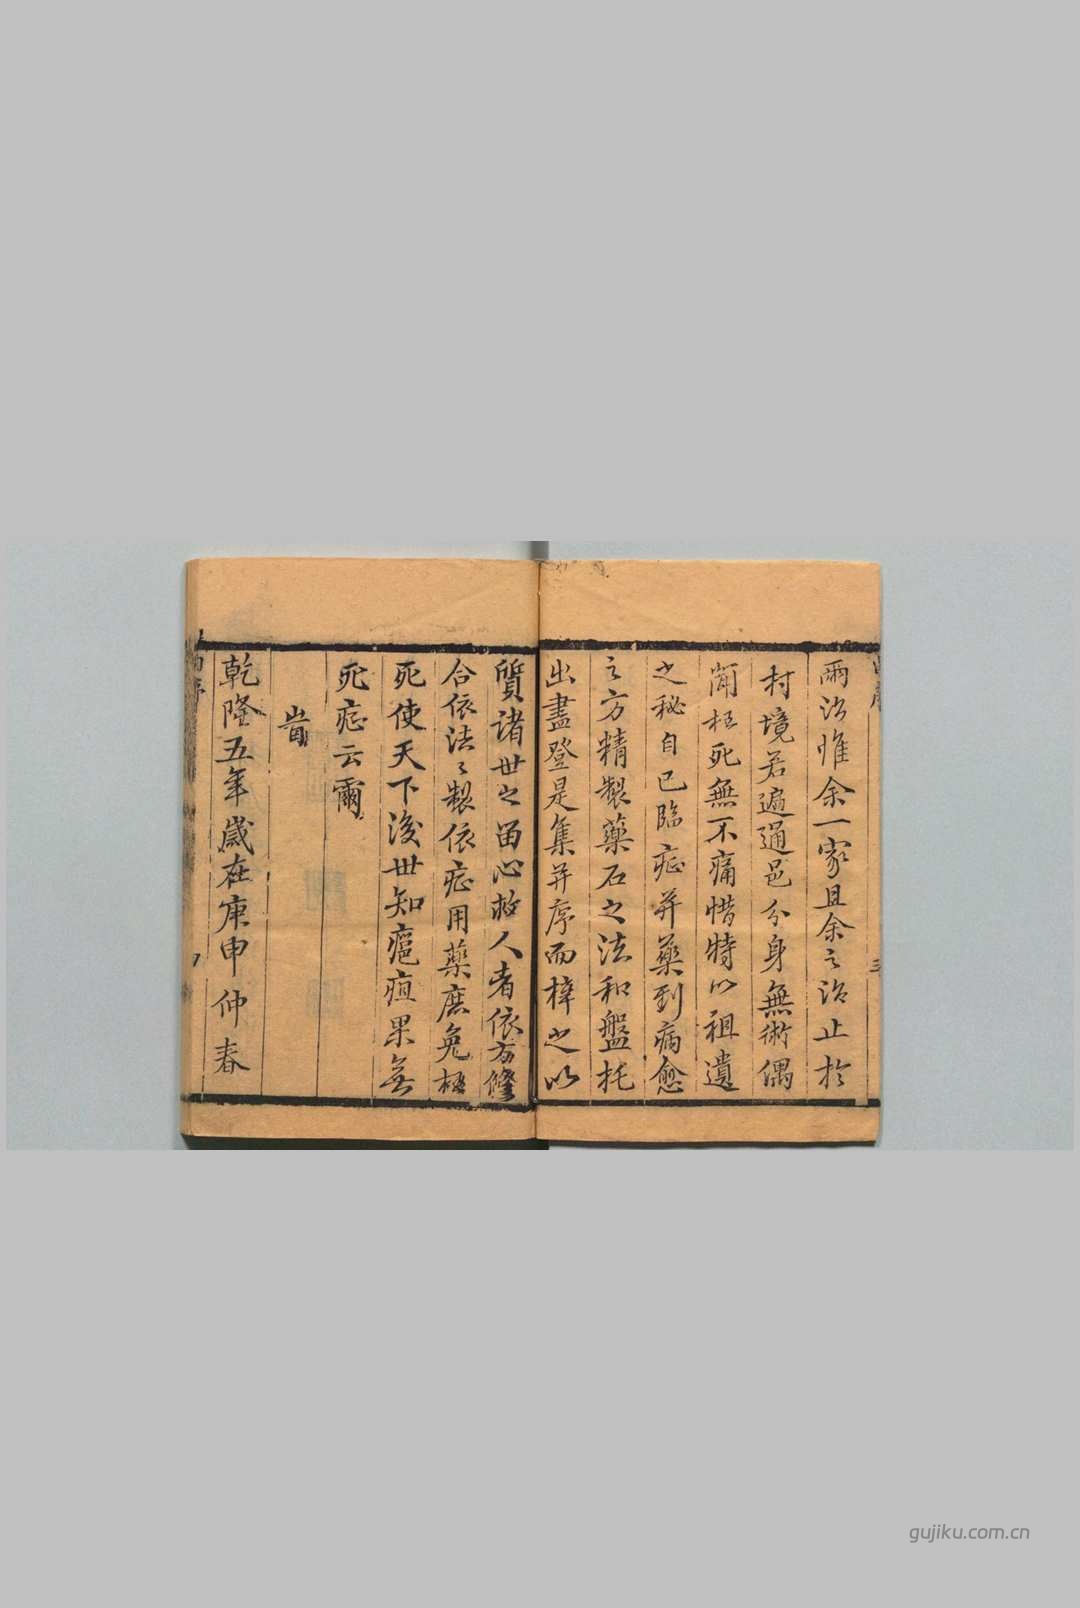 兩治惟余一家且余之治止於
村境若遍通邑分身無術偶
聞枉死無不痛惜特以祖遺
之秘自己臨症并藥到病愈
之方精製藥石之法和盤托
出盡登是集并序而梓之以
質諸世之留心救人者依方修
合依法之製依症用藥庶免枉
死使天下後世知瘟疽果無
死症云爾
旹
乾隆五年歲在庚申仲春
gujiku.com.cn